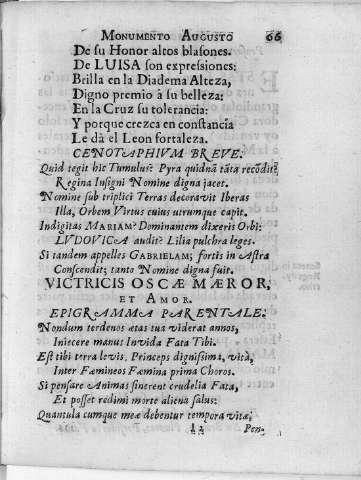 MONUMENTO AUGUSTO 66
De su Honor altos blasones.
De LUISA son expressiones:
Brilla en la Diadema Alteza,
Digno premio à su belleza:
En la Cruz su tolerancia:
Y porque crezca en constancia
Le dà el Leon fortaleza.
CENOTAPHIUM BREVE.
Quid tegit hic Tumulus? Pyra quidnã tãta recõdit?
Regina Insigni Nomine digna jacet.
Nomine sub triplici Terras decoravit Iberas
Illa, Orbem Virtus cuius utrumque capit.
Indigitas MARIAM? Dominantem dixeris Orbi:
LVDOVICA audit? Lilia pulchra leges.
Si tandem appelles GABRIELAM; fortis in Astra
Conscendit; tanto Nomine digna fuit.
VICTRICIS OSCÆ MÆROR,
ET AMOR.
EPIGRAMMA PARENTALE.
Nondum terdenos ætas tua viderat annos,
Iniecere manus Invida Fata Tibi.
Est tibi terra levis, Princeps dignissima, vità,
Inter Fæmineos Fæmina prima Choros.
Si pensare Animas sinerent crudelia Fata,
Et posset redimi morte aliena salus:
Quantula cumque meæ debentur tempora vitæ,
I 2 Pen-